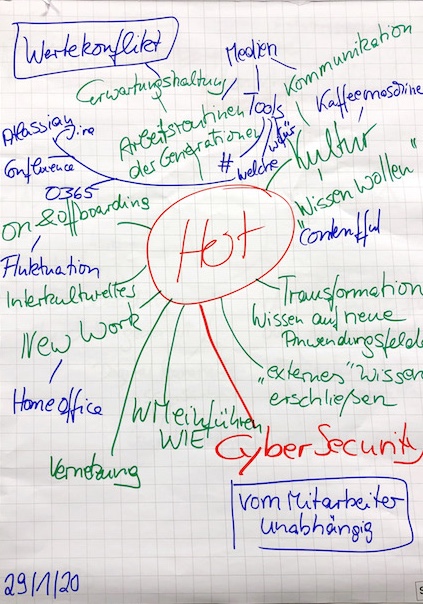 Wertekonflikt
Medien
Kommunikation
Erwartungshaltung
Tools
Kaffeemaschine
Arbeitsroutinen
der Generationen
#
welche
wofür
Kultur
"Wissen wollen"
"Contentful
Atlassian
Jira
Confluence
O365
on & offboarding
Fluktuation
Hot
Interkulturelles
New Work
Homeoffice
Transformation
Wissen auf neue
Anwendungsfelder
"externes" Wissen
erschließen
WM einführen
WIE
Vernetzung
CyberSecurity
vom Mitarbeiter
unabhängig
29/1/20